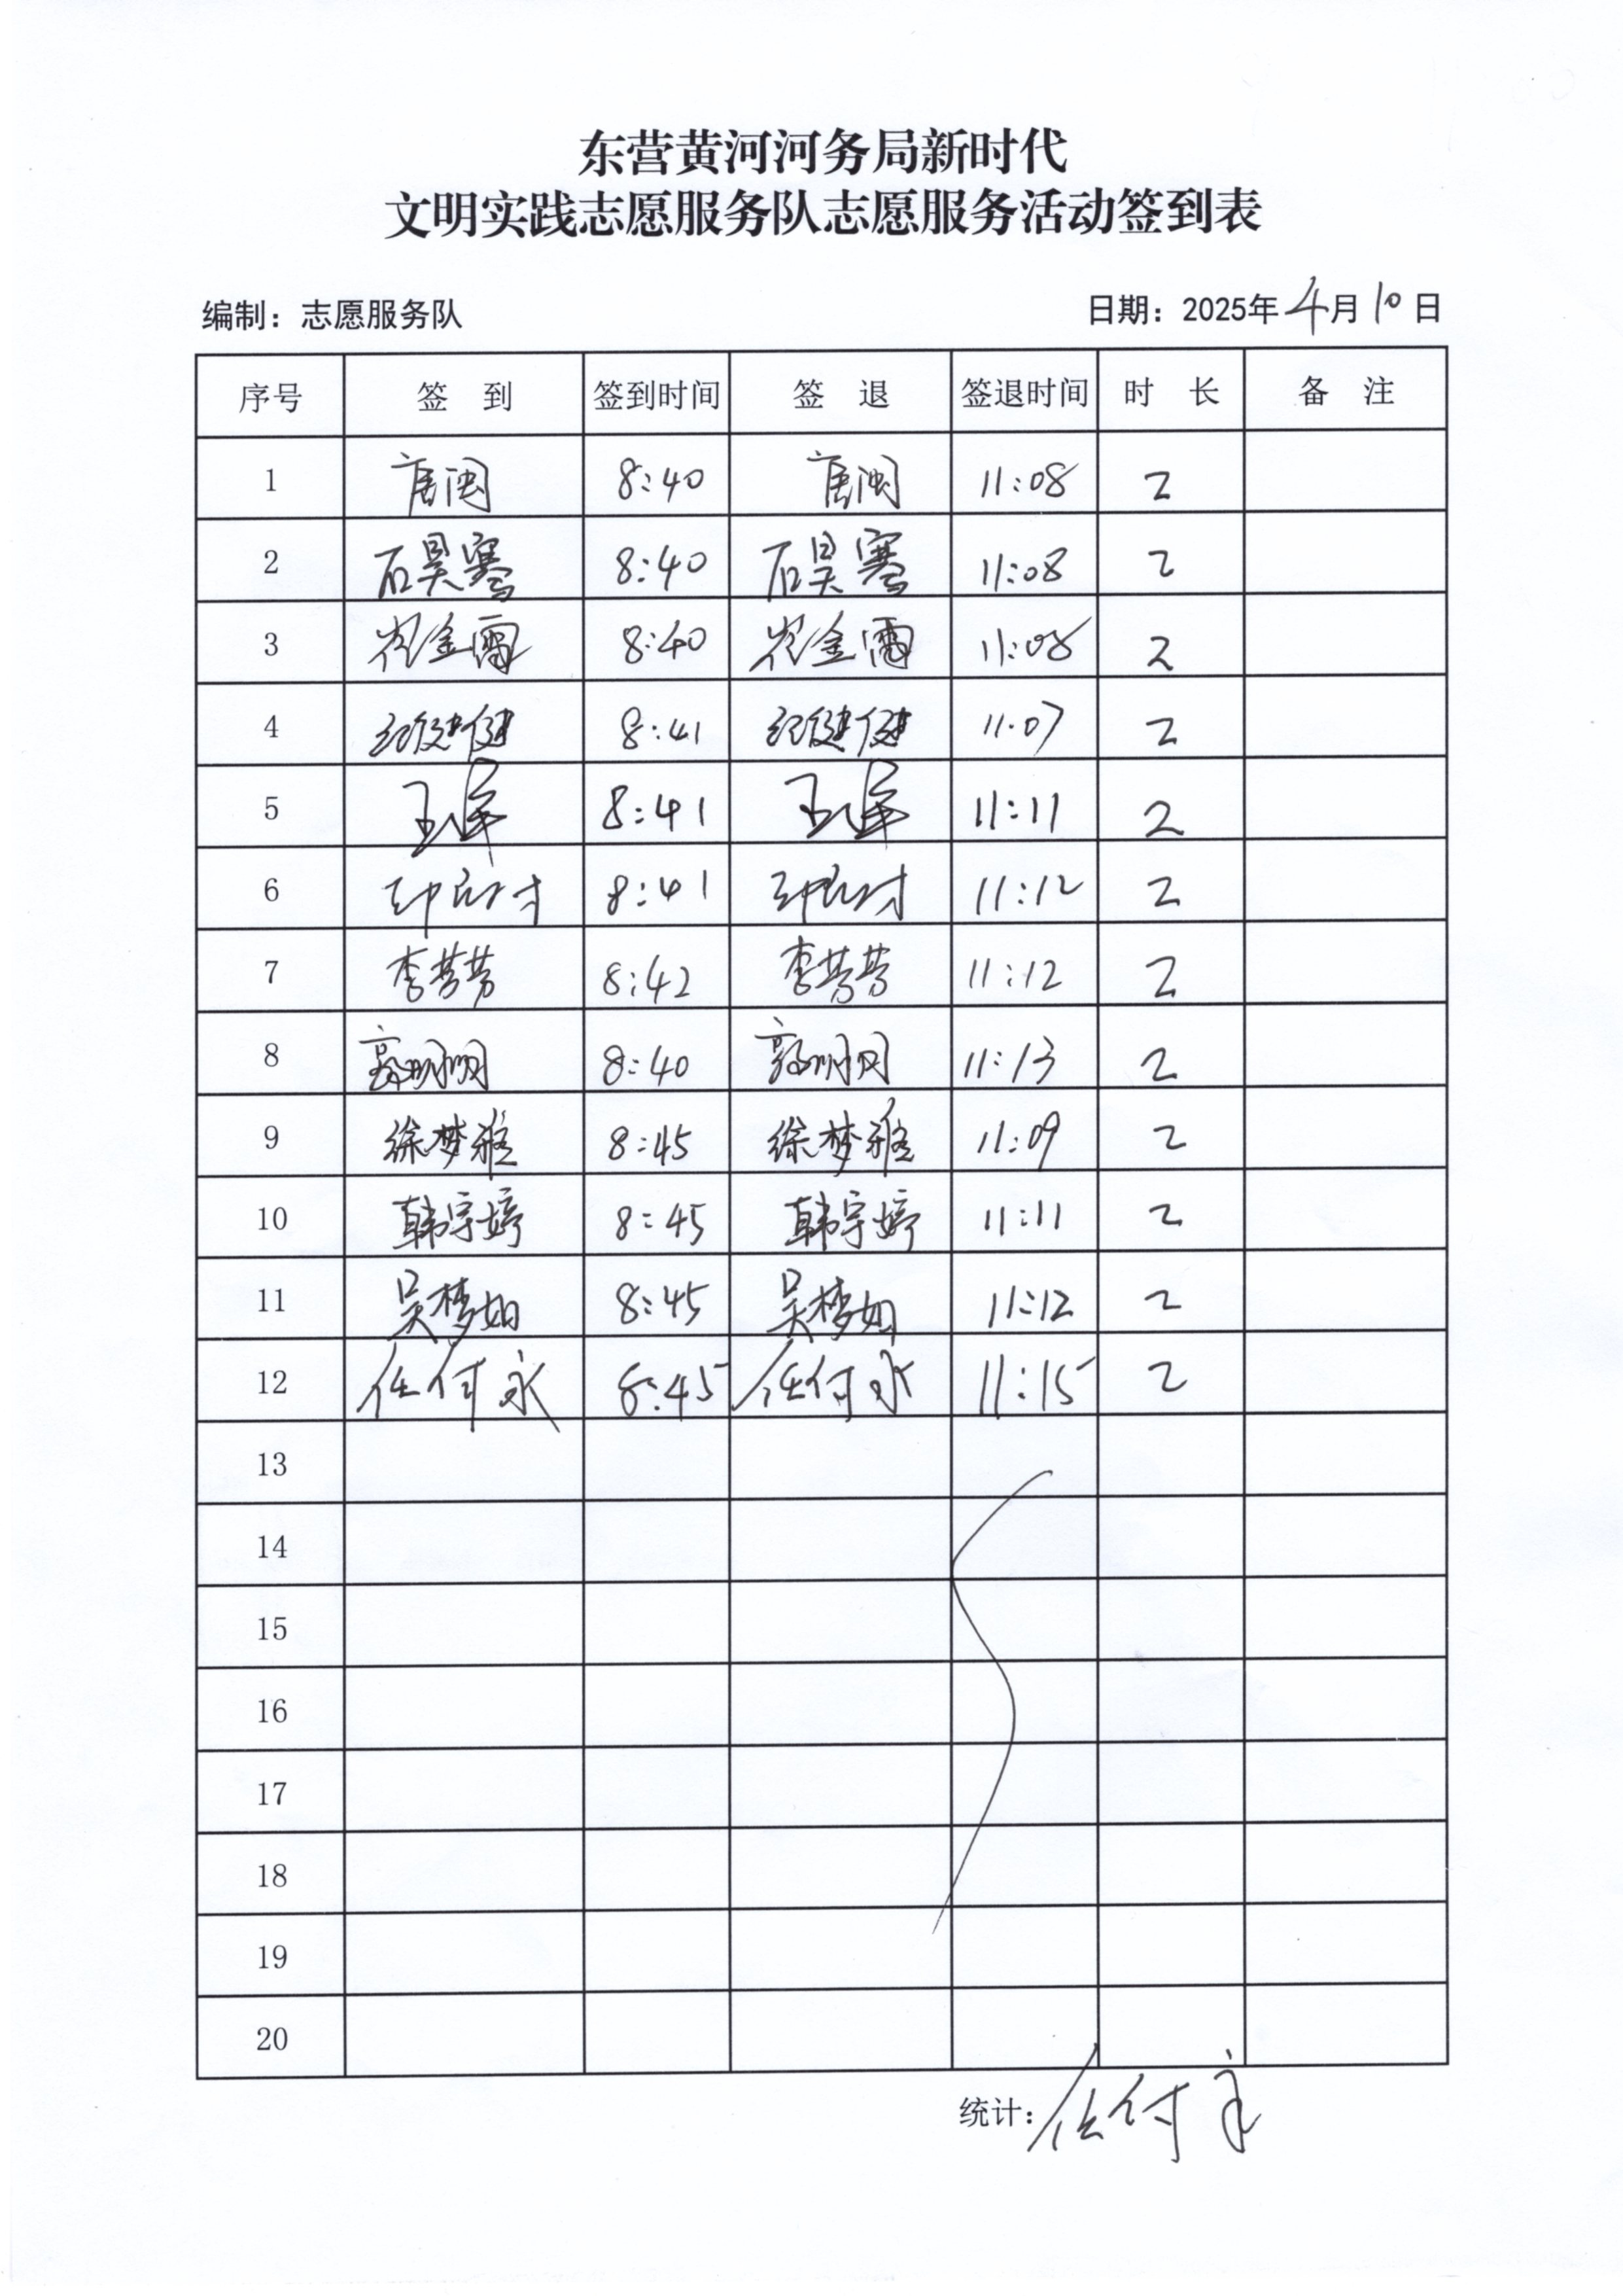 东营黄河河务局新时代
文明实践志愿服务队志愿服务活动签到表
编制：志愿服务队 日期：2025年4月10日
序号 签 到 签到时间 签 退 签退时间 时 长 备 注
1 唐闽 8:40 唐闽 11:08 2
2 石昊骞 8:40 石昊骞 11:08 2
3 崔金雷 8:40 崔金雷 11:08 2
4 纪健健 8:41 纪健健 11:07 2
5 8:41 11:11 2
6 8:41 11:12 2
7 李芳芳 8:42 李芳芳 11:12 2
8 郭明明 8:40 郭明明 11:13 2
9 徐梦雅 8:45 徐梦雅 11:09 2
10 韩宇婷 8:45 韩宇婷 11:11 2
11 吴梦如 8:45 吴梦如 11:12 2
12 任付永 8:45 任付永 11:15 2
13
14
15
16
17
18
19
20
统计：任付永